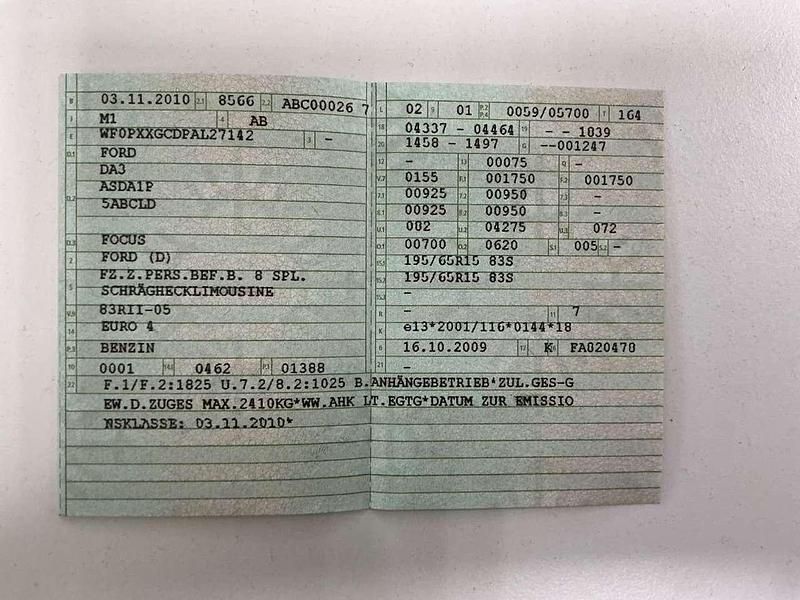 B 03.11.2010 2.1 8566 2.2 ABC00026 7
J M1 4 AB
E WF0PXXGCDPAL27142 3 -
D.1 FORD
DA3
D.2 ASDA1P
5ABCLD
D.3 FOCUS
2 FORD (D)
5 FZ.Z.PERS.BEF.B. 8 SPL.
SCHRÄGHECKLIMOUSINE
V.9 83RII-05
14 EURO 4
P.3 BENZIN
10 0001 14.1 0462 P.1 01388
L 02 9 01 P.2 P.4 0059/05700 T 164
18 04337 - 04464 19 - - 1839
20 1458 - 1497 G --001247
12 - 13 00075 Q -
V.7 0155 F.1 001750 F.2 001750
7.1 00925 7.2 00950 7.3 -
8.1 00925 8.2 00950 8.3 -
U.1 082 U.2 04275 U.3 072
O.1 00700 O.2 0620 S.1 005 S.2 -
15.1 195/65R15 83S
15.2 195/65R15 83S
15.3 -
R - 11 7
K e13*2001/116*0144*18
6 16.10.2009 17 K 16 FA020470
21 -
22 F.1/F.2:1825 U.7.2/8.2:1025 B.ANHÄNGEBETRIEB*ZUL.GES-G
EW.D.ZUGES MAX.2410KG*WW.AHK LT.EGTG*DATUM ZUR EMISSIO
NSKLASSE: 03.11.2010*